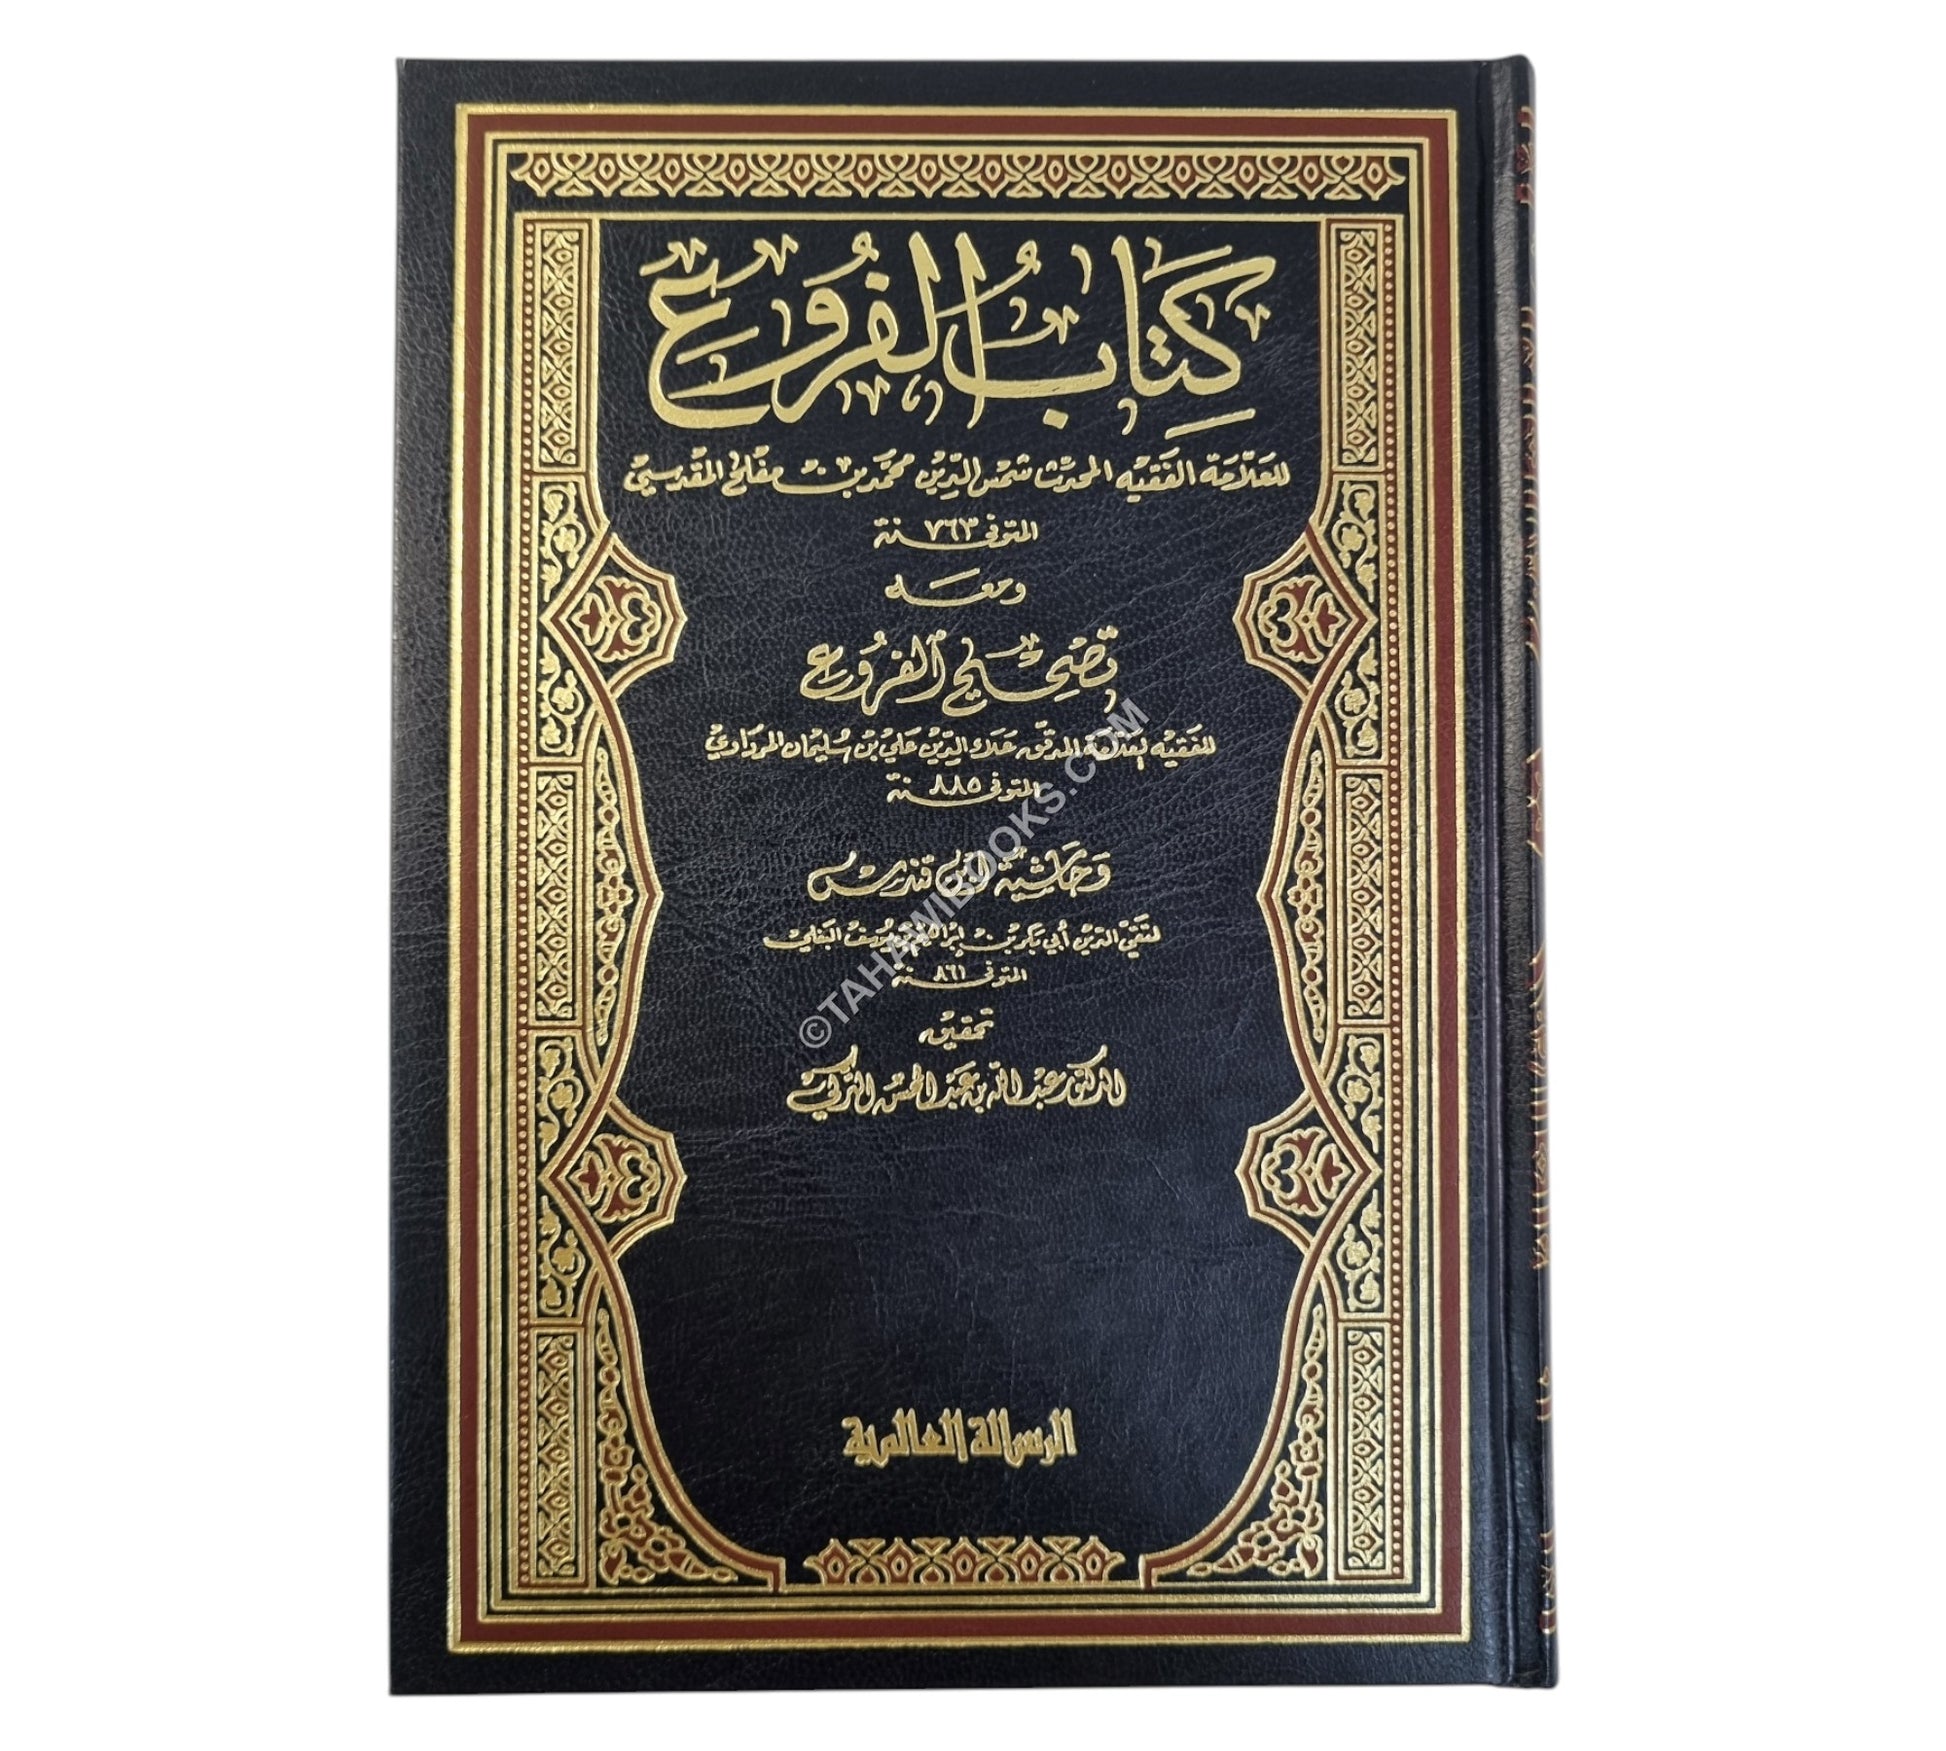 كِتَابُ الفُرُوع
للعَلّامَة الفَقيْه المحدث شمس الدِّين محمَّد بن مفلح المقدسي
المتوفى سنة ٧٦٣
ومعَه
تصْحِيْح الفُرُوع
للفَقيْه العلّامَة المدقّق عَلاء الدِّيْن عَلي بن سُليمان المردَاوي
المتوفى سنة ٨٨٥
وَحَاشِيَة ابن قندس
لتقيّ الدّين أبي بكر بن إبراهيم بن يوسف البَعلي
المتوفى سنة ٨٦١
تحقيق
الدكتور عَبد الله بن عَبْد المحسن التركي
الرسالة العالمية
©TAHAWIBOOKS.COM